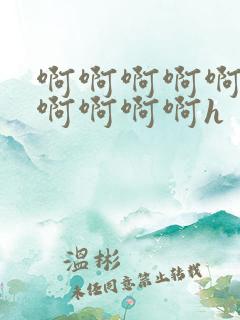 啊啊啊啊啊
啊啊啊啊h
温彬
未经同意禁止转载